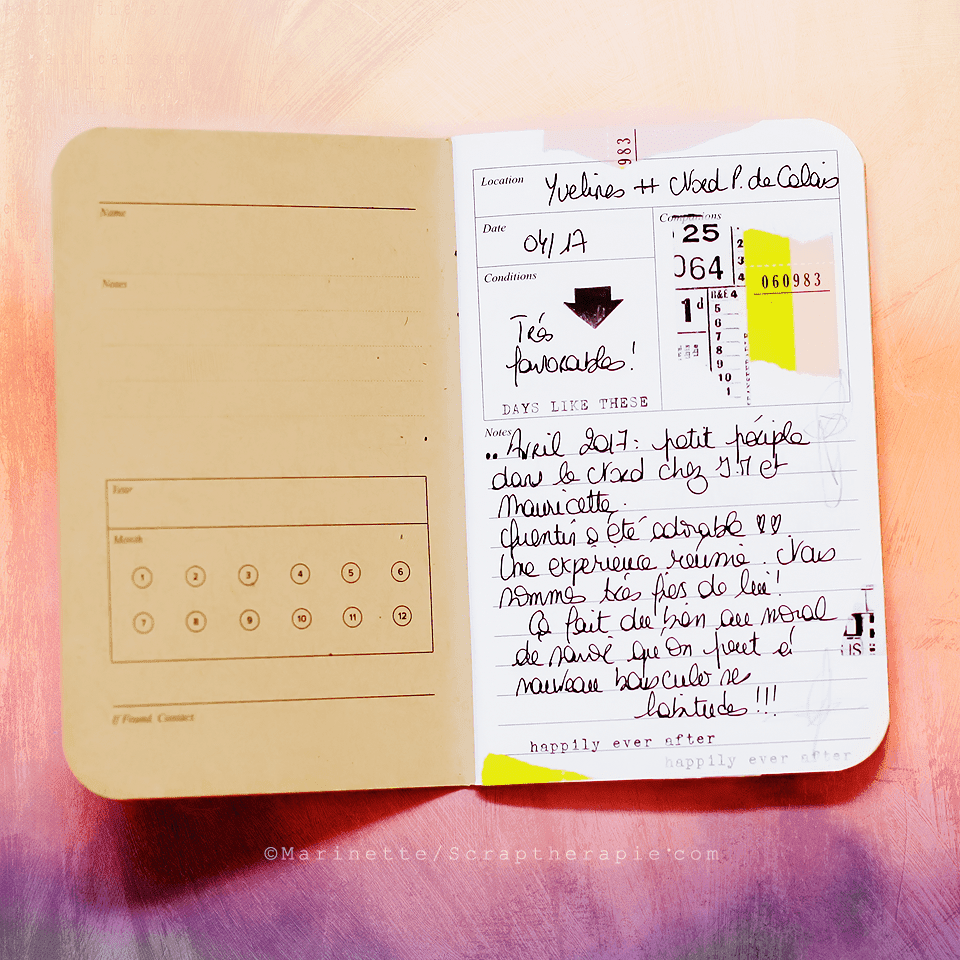 Name
Notes
Year
Month
1 2 3 4 5 6
7 8 9 10 11 12
If Found Contact
983
Location
Yvelines ++ Nord P. de Calais
Date
04/17
Companions
25
064
1d
R&E 4
2
3
4
5
6
7
8
9
10
1
060983
Conditions
Très
favorables!
DAYS LIKE THESE
Notes
.. Avril 2017: petit périple
dans le Nord chez J.M et
Mauricette.
Quentin a été adorable ♡♡
Une expérience réussie. Nous
sommes très fiers de lui!
Ça fait du bien au moral
de savoir qu'on peut à
nouveau bousculer ses
habitudes!!!
happily ever after
happily ever after
©Marinette/Scraptherapie.com